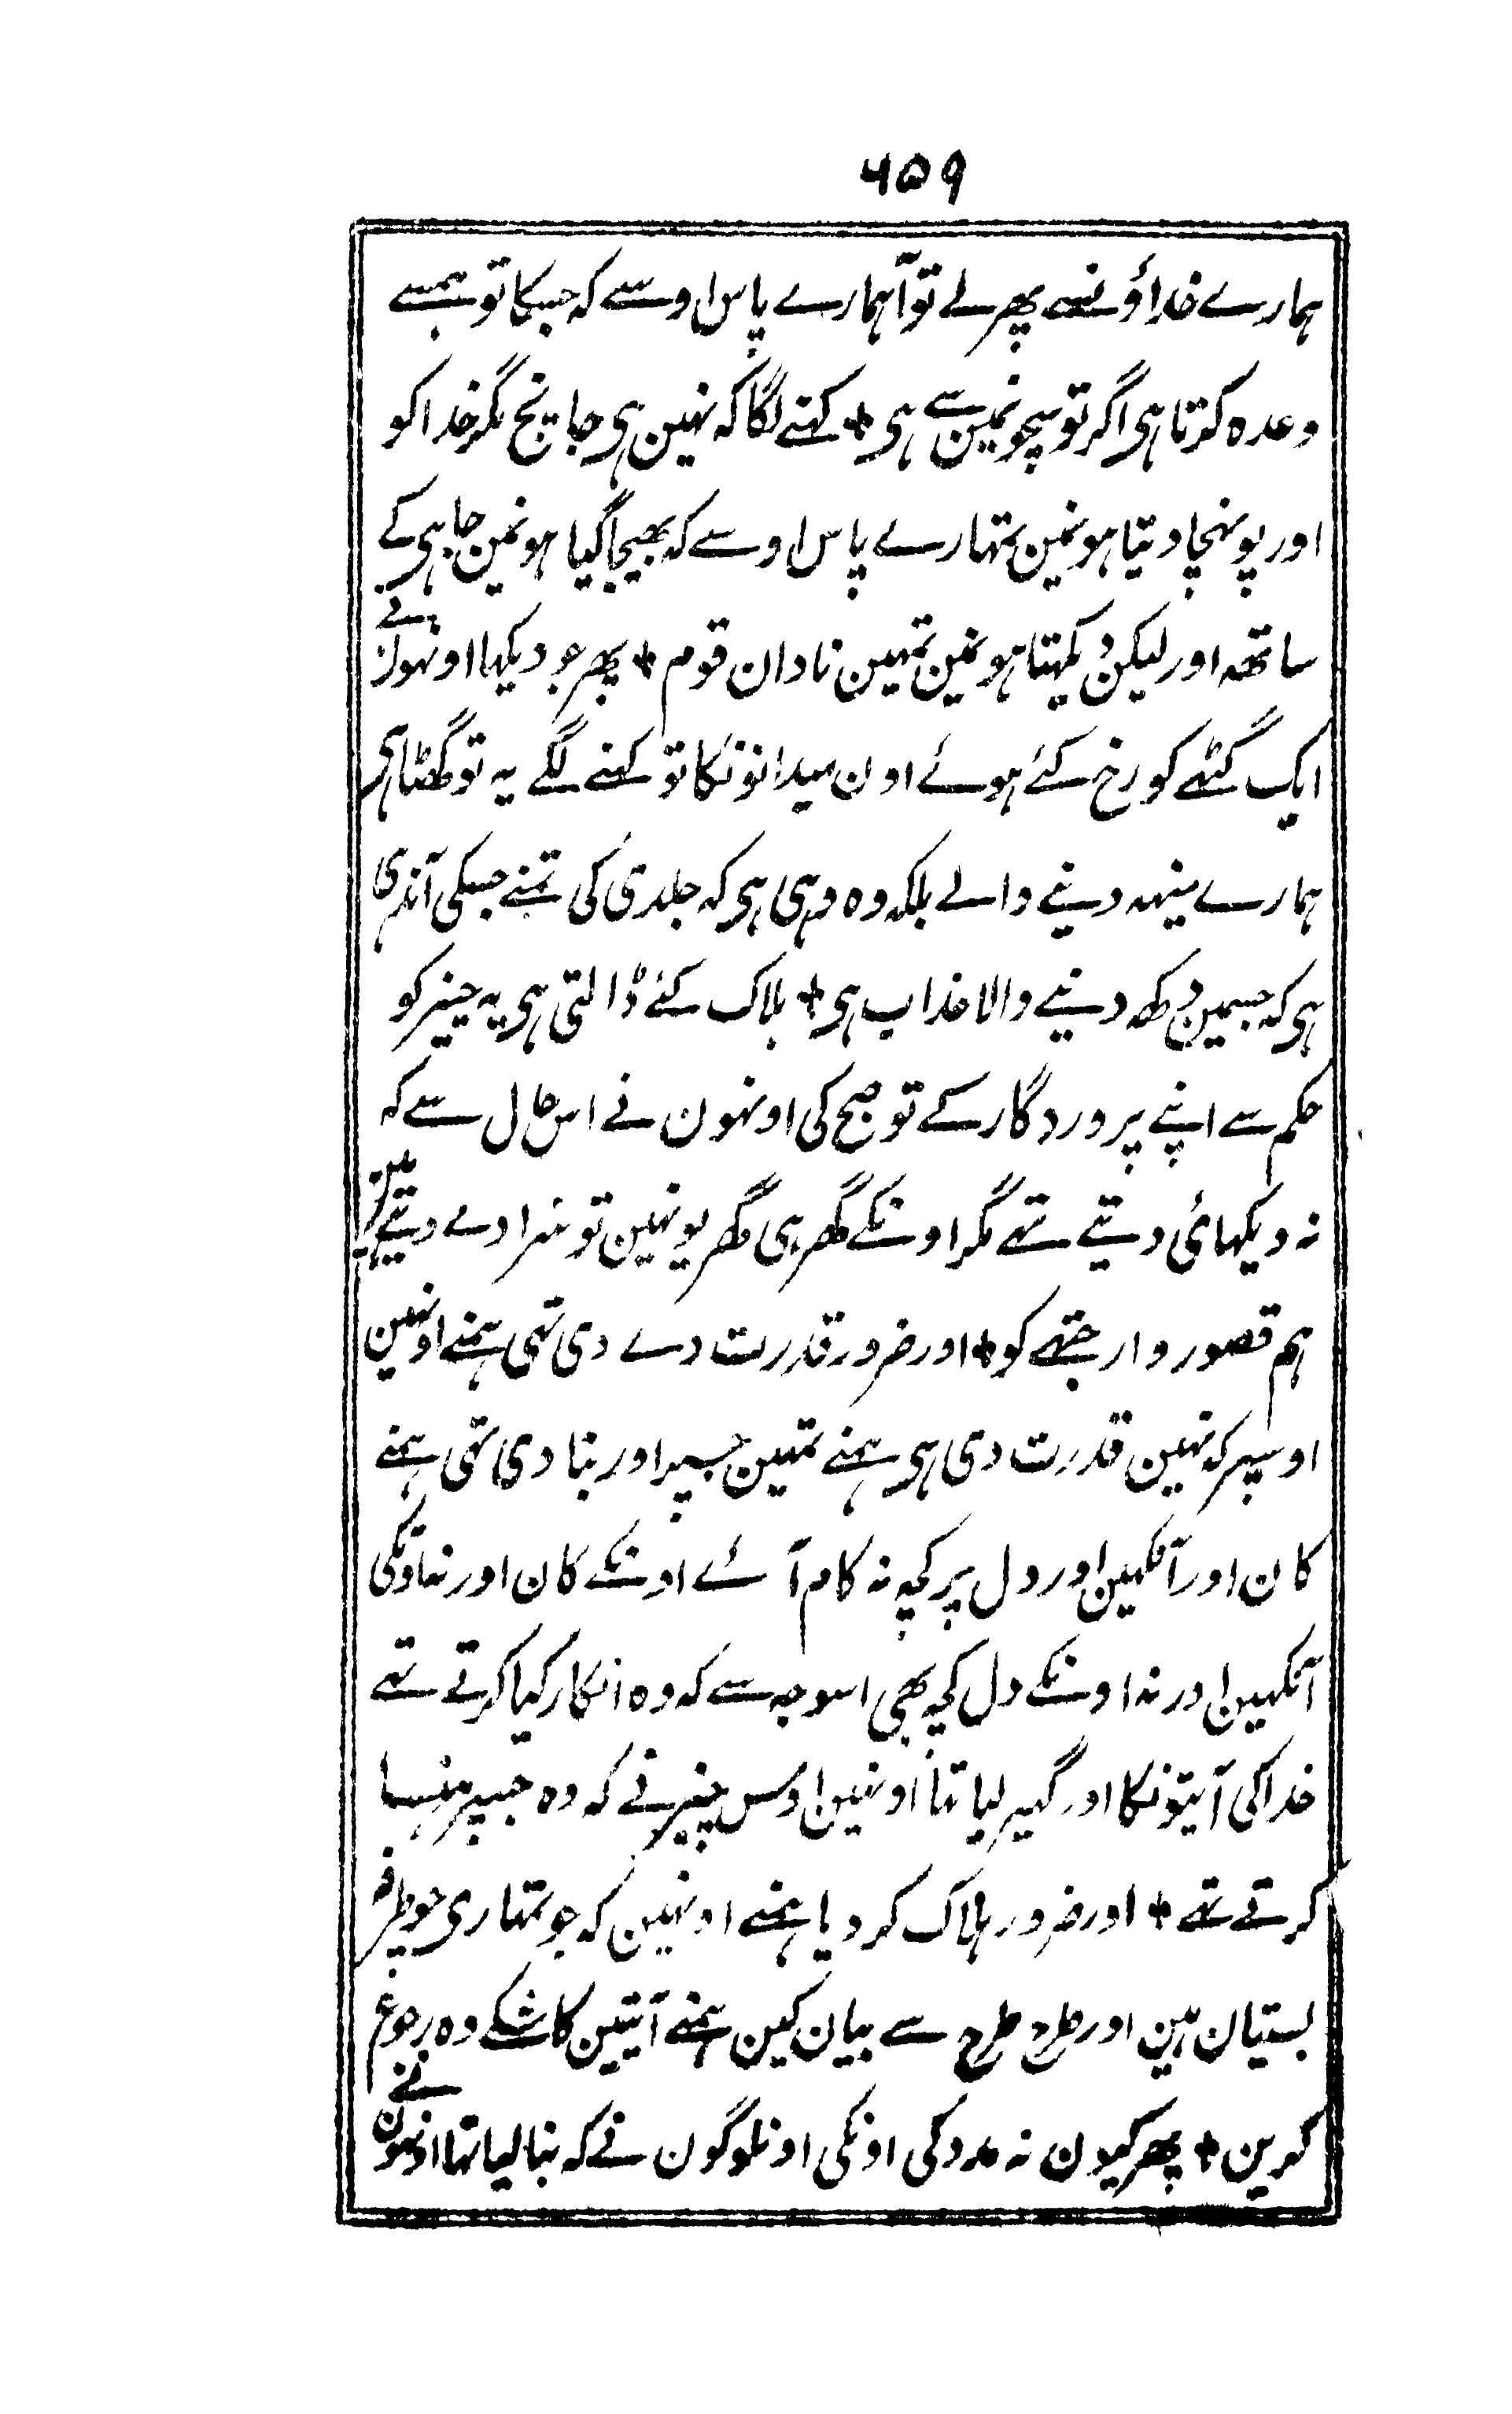 ۶۵۹
ہمارے خداؤنسے پھر لے تو آ ہمارے پاس اوسے کہ جسکا تو ہمسے
وعدہ کرتا ہی اگر تو سچونمین سے ہی + کہنے لگا کہ نہین ہی جانچ مگر خدا کو
اور پونہچا دیتا ہونمین تمہارے پاس اوسے کہ بھیجا گیا ہونمین جاہی کے
ساتھہ اور لیکن دیکہتا ہونمین تمہین نادان قوم + پھر جو دیکہا اونہون نے
ایک گٹھے کو رخ کئے ہوئے اون میدانونکا تو کہنے لگے یہ تو گھٹا ہی
ہمارے مینہہ دینے والے بلکہ وہ وہی ہی کہ جلدی کی تمنے جسکی آندہی
ہی کہ جسمین دکھہ دینے والا عذاب ہی + ہلاک کئے ڈالتی ہی یہ چیز کو
حکم سے اپنے پروردگار کے تو صبح کی اونہون نے اس حال سے کہ
نہ دیکہائی دیتے تہے مگر اونکے گھر ہی گھر یونہین تو سزا دے دیتے ہین
ہم قصور وار جتھے کو + اور ضرور قدرت دے دی تھی ہمنے اونہین
اوسپر کہ نہین قدرت دی ہی ہمنے تمہین جسپر اور بنا دی تھی ہمنے
کان اور آنکہین اور دل پر کچہ نہ کام آئے اونکے کان اور نہ اونکی
آنکہین اور نہ اونکے دل کچہ بھی اسوجہ سے کہ وہ انکار کیا کرتے تہے
خدا کی آیتونکا اور گہیر لیا تہا اونہین اوس چیز نے کہ وہ جسپر ہنسا
کرتے تہے + اور ضرور ہلاک کر دیا ہمنے اونہین کہ جو تمہاری چوطرفہ
بستیان ہین اور طرح طرح سے بیان کین ہمنے آیتین کاشکے وہ رجوع
کرین + پھر کیون نہ مدد کی اونکی اونلوگون نے کہ بنا لیا تہا اونہون نے